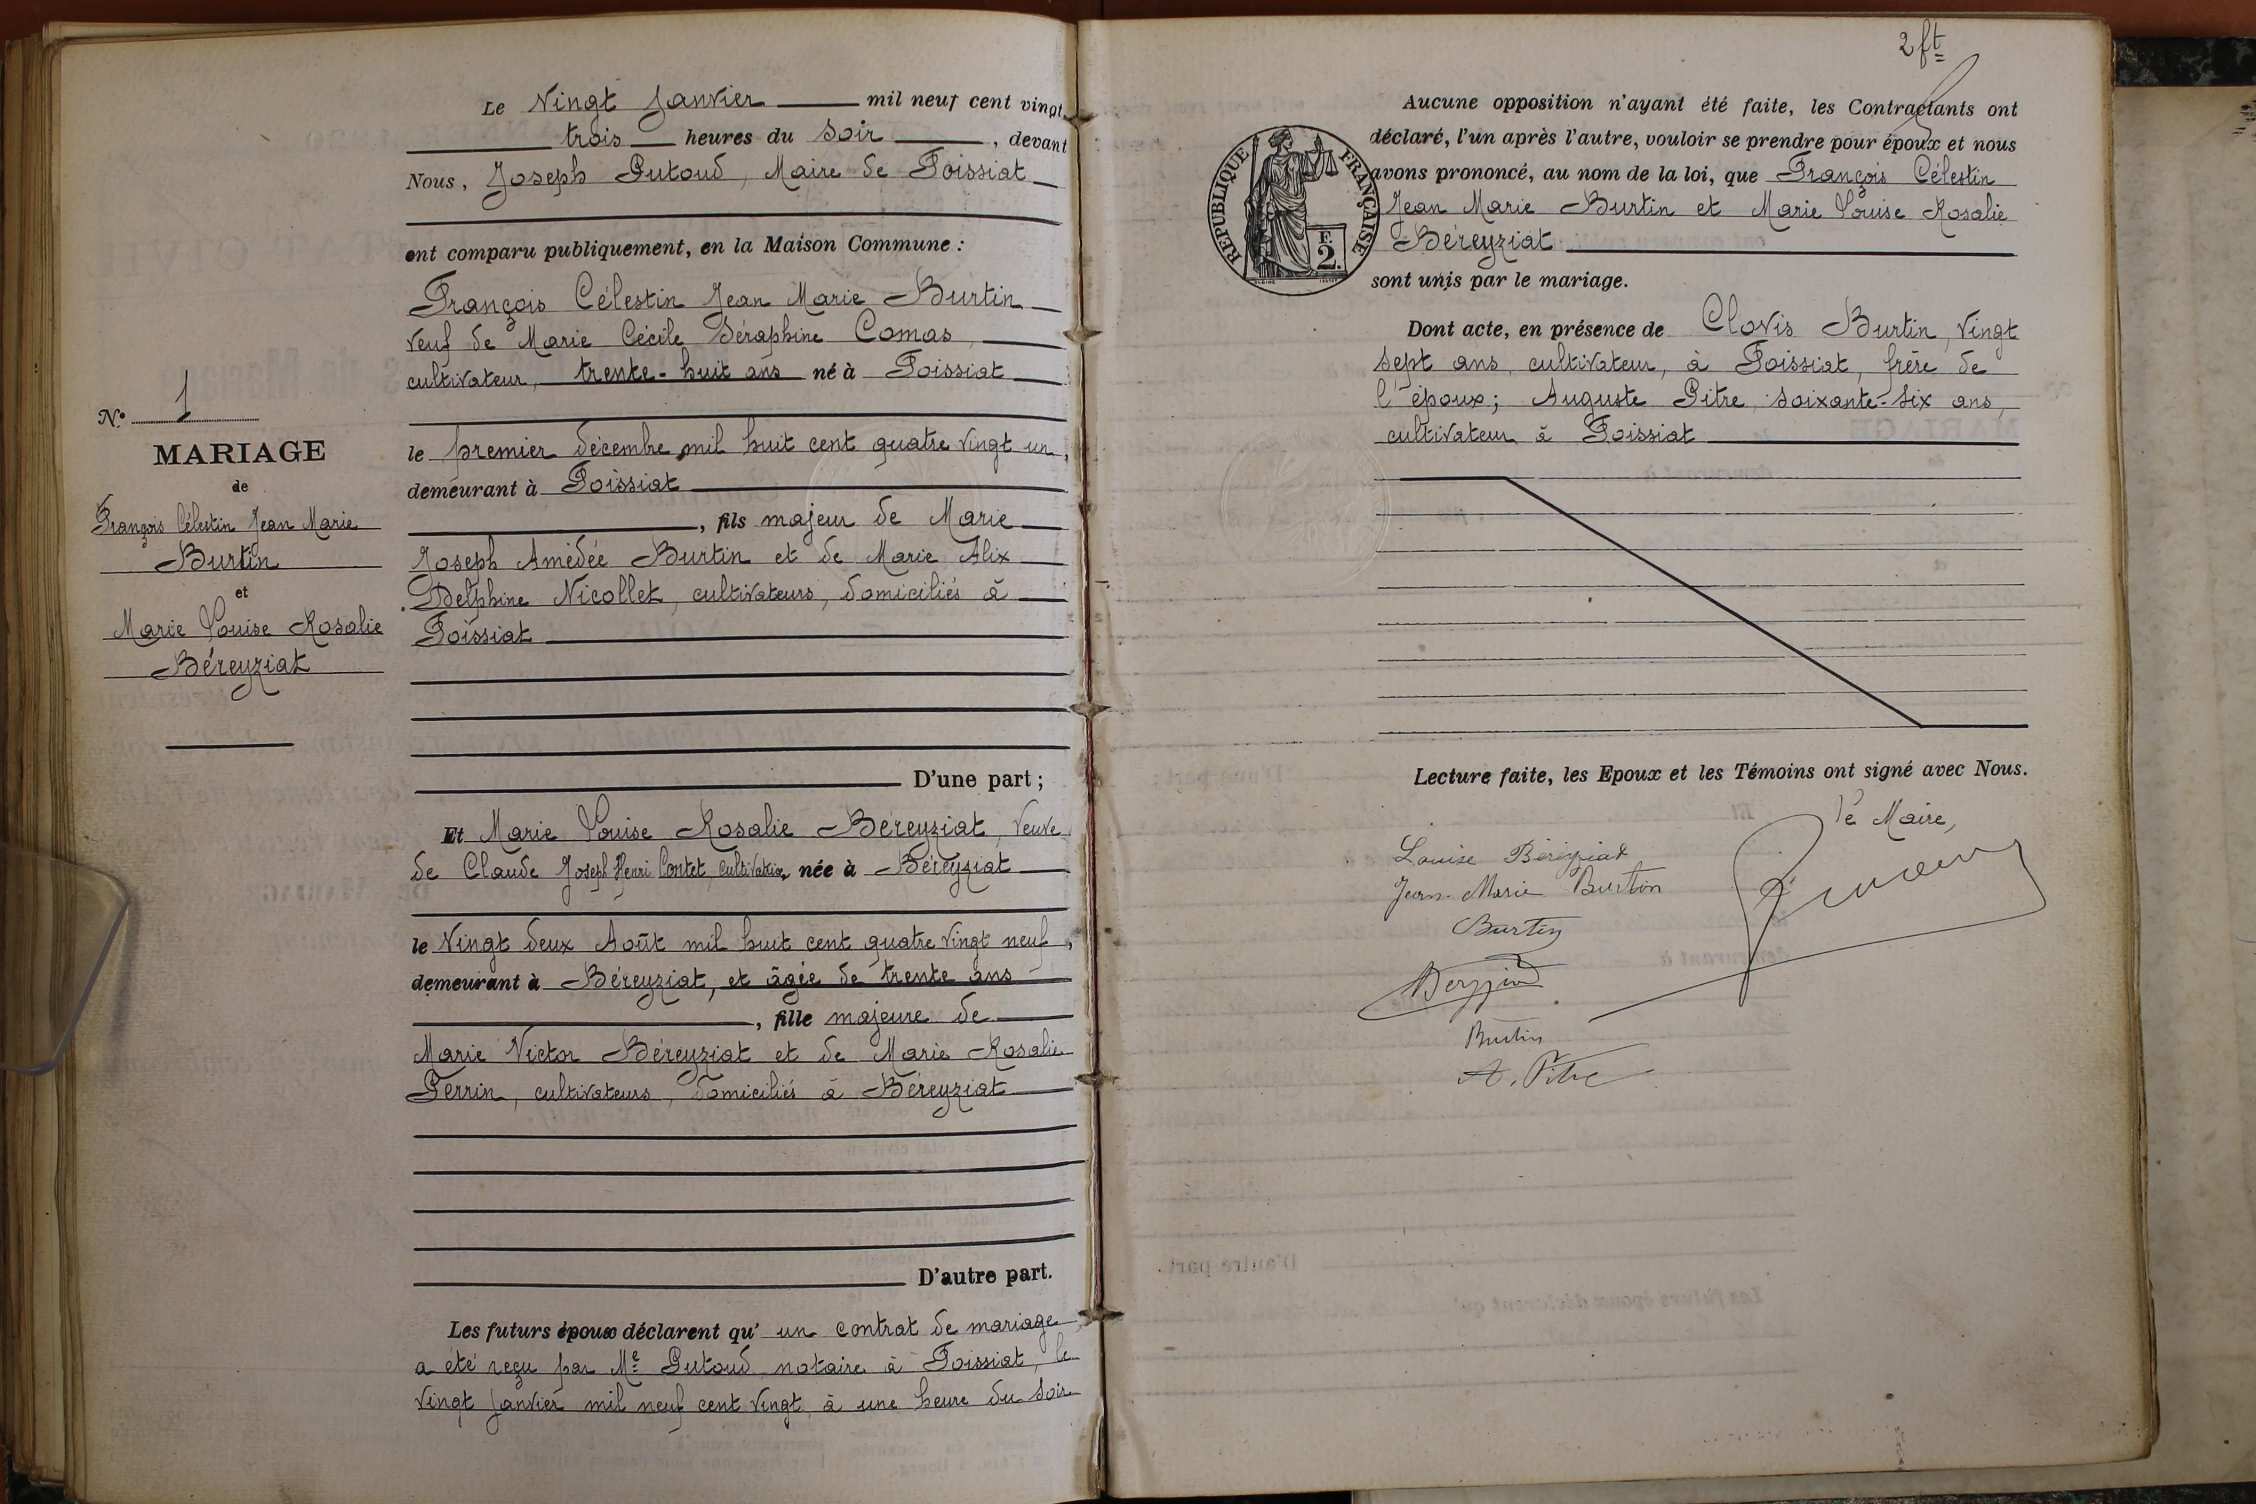 N° 1
MARIAGE
de
François Célestin Jean Marie
Burtin
et
Marie Louise Rosalie
Béreyziat
Le vingt Janvier mil neuf cent vingt,
trois heures du soir, devant
Nous, Joseph Putoud, Maire de Foissiat
ont comparu publiquement, en la Maison Commune :
François Célestin Jean Marie Burtin
veuf de Marie Cécile Séraphine Comas,
cultivateur, trente-huit ans né à Foissiat
le premier décembre mil huit cent quatre vingt un,
demeurant à Foissiat
, fils majeur de Marie
Joseph Amédée Burtin et de Marie Alix
Delphine Nicollet, cultivateurs, domiciliés à
Foissiat
D'une part ;
Et Marie Louise Rosalie Béreyziat, veuve
de Claude Joseph Henri Contet, cultivatrice, née à Béreyziat
le vingt deux Août mil huit cent quatre vingt neuf,
demeurant à Béreyziat, et âgée de trente ans
, fille majeure de
Marie Victor Béreyziat et de Marie Rosalie
Perrin, cultivateurs, domiciliés à Béreyziat
D'autre part.
Les futurs époux déclarent qu' un contrat de mariage
a été reçu par Me Putoud notaire à Foissiat, le
vingt Janvier mil neuf cent vingt à une heure du soir
2 ft
RÉPUBLIQUE FRANÇAISE
F.
2.
Aucune opposition n'ayant été faite, les Contractants ont
déclaré, l'un après l'autre, vouloir se prendre pour époux et nous
avons prononcé, au nom de la loi, que François Célestin
Jean Marie Burtin et Marie Louise Rosalie
Béreyziat
sont unis par le mariage.
Dont acte, en présence de Clovis Burtin, vingt
sept ans, cultivateur, à Foissiat, frère de
l'époux; Auguste Pitre, soixante-six ans,
cultivateur à Foissiat
Lecture faite, les Epoux et les Témoins ont signé avec Nous.
Le Maire,
Louise Béréyziat
Jean-Marie Burtin
Burtin
Burtin
A. Pitre